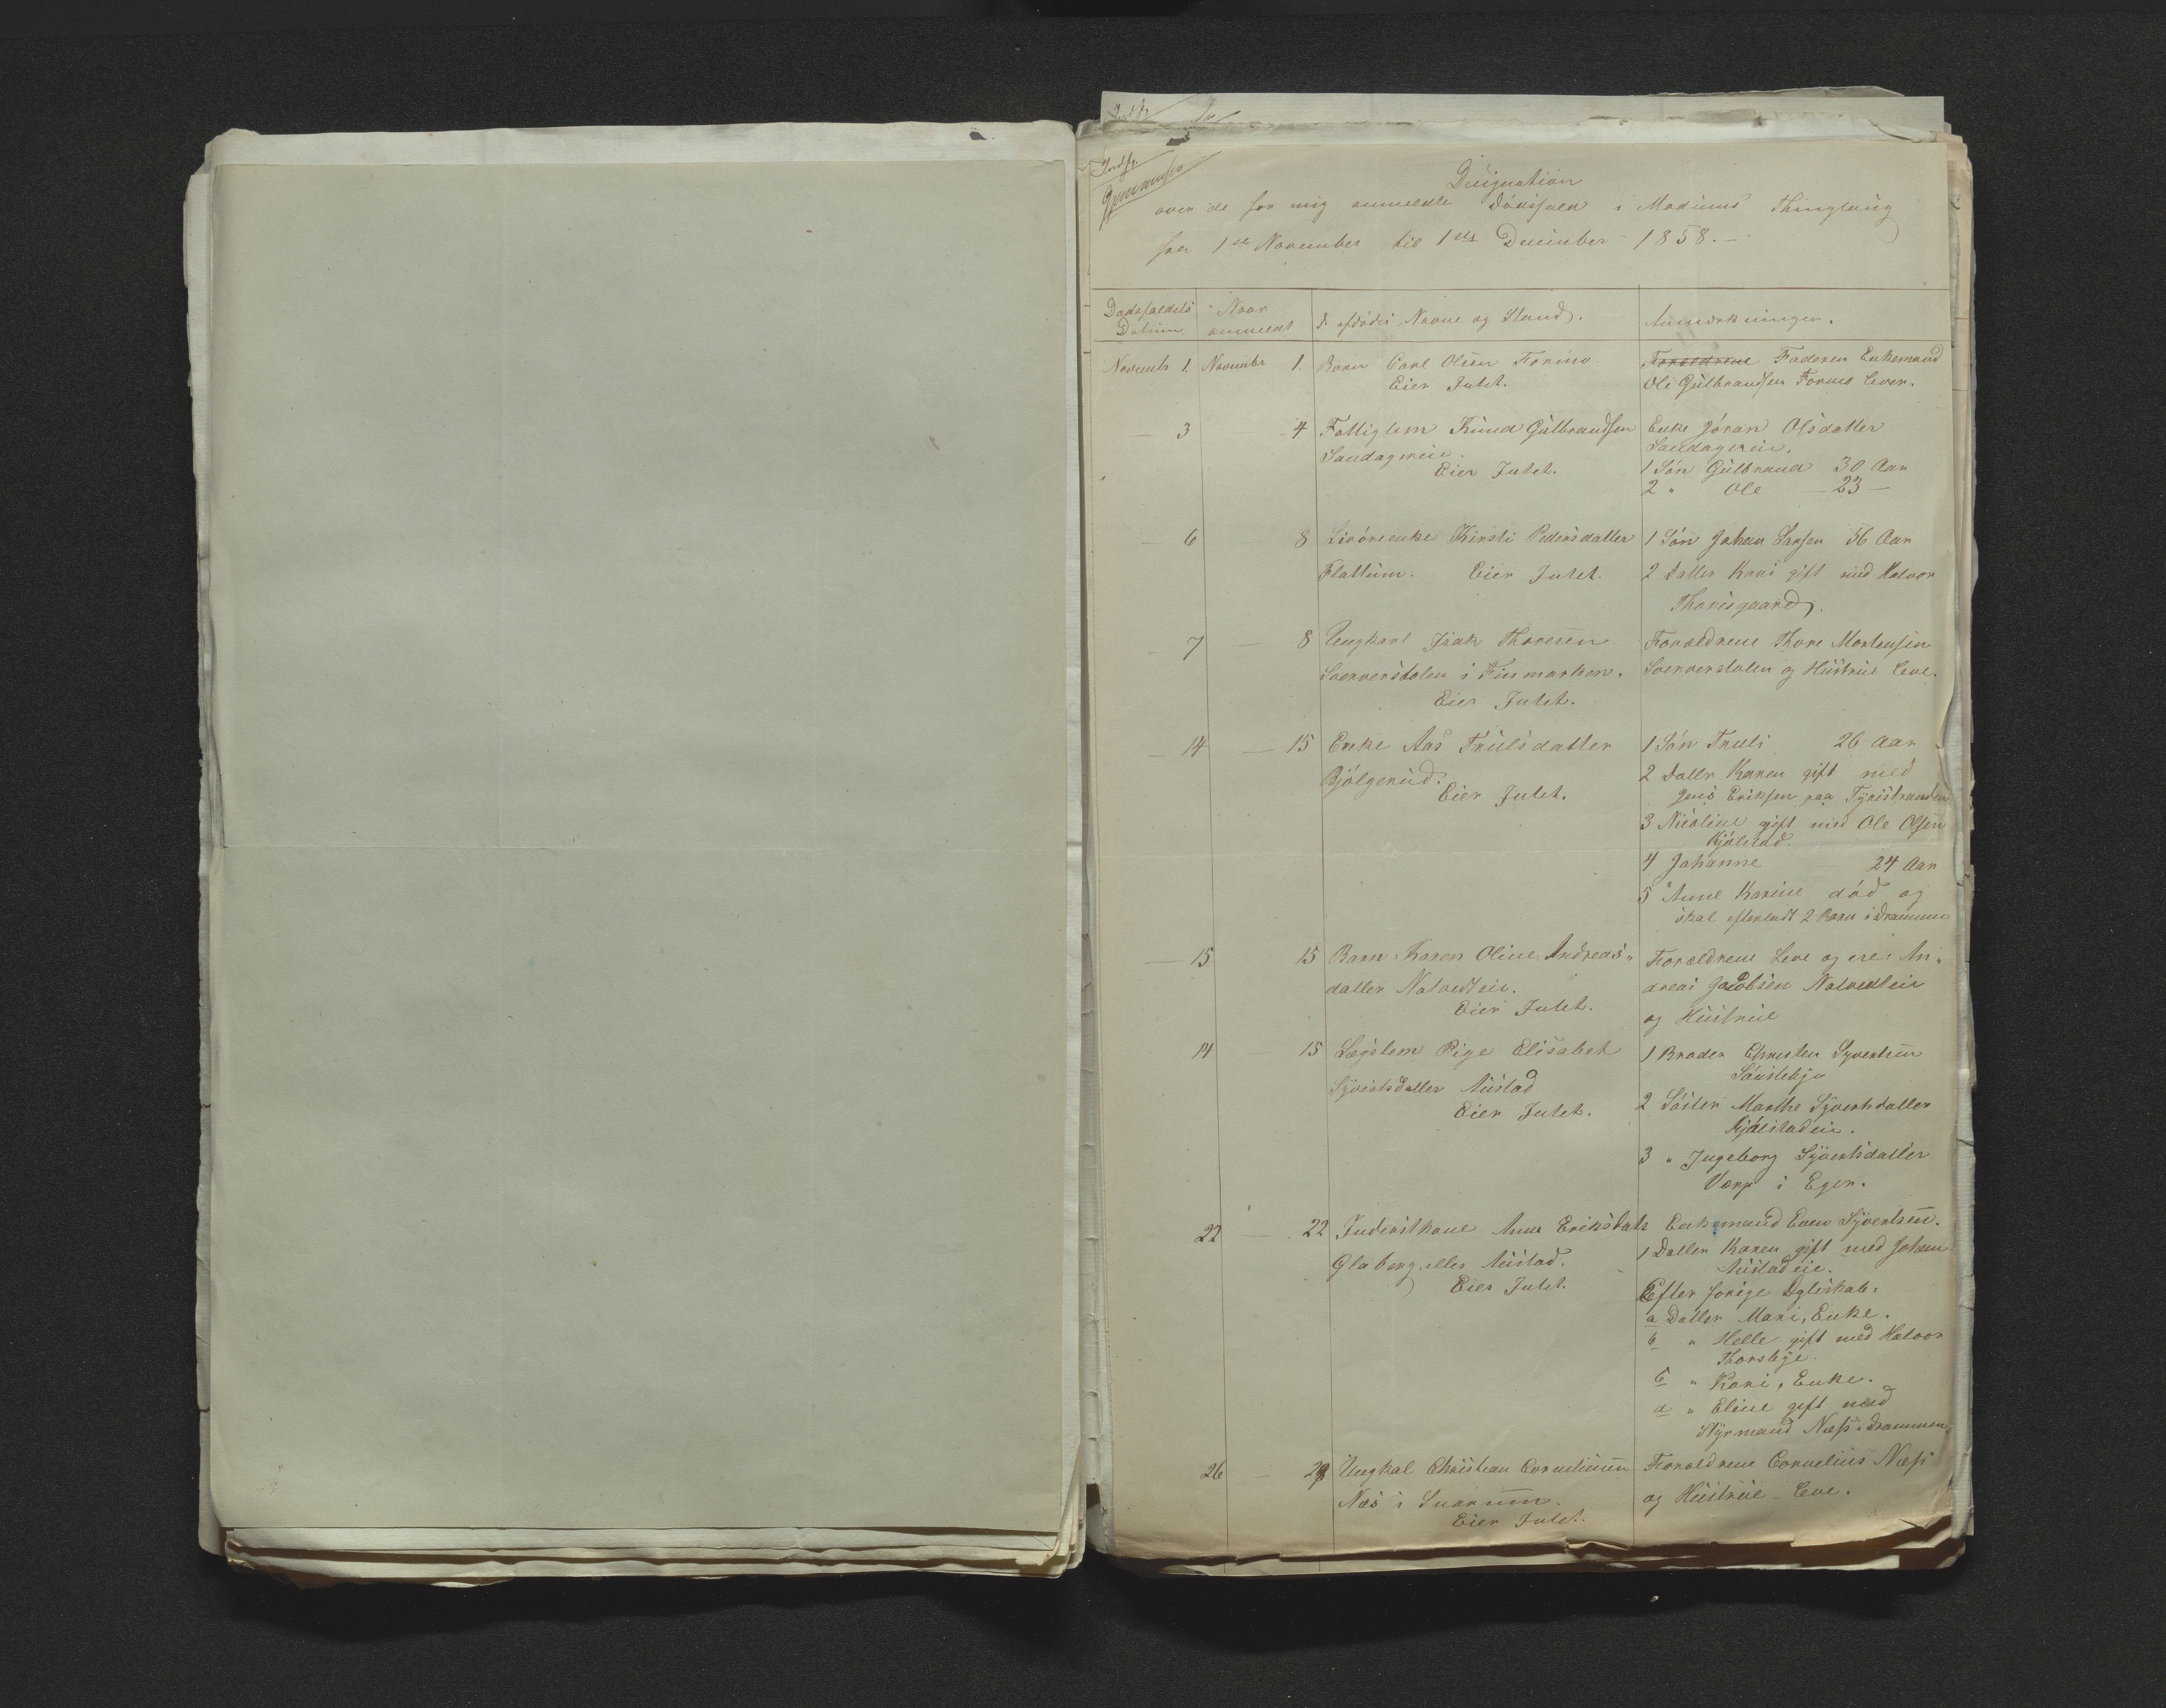 Designation
over de for mig anmeldte Dödsfald i Modums Thinglaug
fra 1ste November til 1ste December 1858.
Dødsfaldets Datum
Naar anmeldt
d. afdödes Navne og Stand.
Anmærkninger.
Novembr 1. Novembr 1. Barn Carl Olsen Formo
Eier Intet.
Forældrene Faderen Enkemand
Ole Gulbrandsen Formo lever.
— 3 — 4 Fattiglem Knud Gulbrandsen
Sandagereie.
Eier Intet.
Enke Jöran Olsdatter
Sandagereie.
1 Sön Gulbrand 30 Aar
2 " Ole — 23 —
— 6 8 Livöreenke Kirsti Pedersdatter
Flattum. Eier Intet.
1 Sön Johan Larsen 56 Aar
2 Datter Kari gift med Halvor
Thoresgaard.
— 7 — 8 Ungkarl Isak Thoresen
Sververstolen i Finmarken.
Eier Intet.
Forældrene Thore Mortensen
Sververstolen og Hustrue leve.
— 14 — 15 Enke Aas Trulsdatter
Bjölgerud.
Eier Intet.
1 Sön Truls 26 Aar
2 Datter Karen gift med
Jens Eriksen paa Tyristranden
3 Nicoline gift med Ole Olsen
Kjölstad
4 Johanne 24 Aar
5 Anne Karine död og
skal efterladt 2 Barn i Drammen
— 15 15 Barn Karen Oline Andreas-
datter Natvedteie.
Eier Intet.
Forældrene Leve og ere: An-
dreas Jacobsen Natvedteie
og Hustrue
14 15 Lægslem Pige Elisabet
Syvertsdatter Austad
Eier Intet.
1 Broder Christen Syvertsen
2 Söster Marthe Syvertsdatter
Kjölstadeie.
3 " Ingeborg Syvertsdatter
Varp i Eger.
22 — 22 Inderstkone Anne Eriksdatr
Glaberg eller Austad.
Eier Intet.
Enkemand Even Syvertsen.
1 Datter Karen gift med Johan
Austadeie.
Efter forige Egteskab:
a Datter Mari, Enke.
b " Helle gift med Halvor
Thorsbye.
c " Kari, Enke.
d " Eline gift med
Styrmand Næss i Drammen.
26 — 29 Ungkal Christian Corneliusen
Næs i Snarum.
Eier Intet.
Forældrene Cornelius Næss
og Hustrue leve.